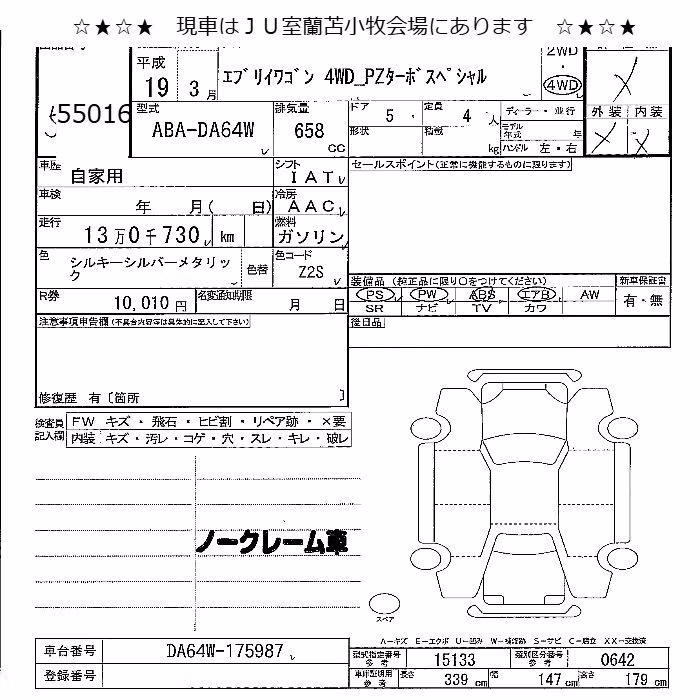 ☆★☆★ 現車はＪＵ室蘭苫小牧会場にあります ☆★☆★
平成 19 3月
エブリイワゴン 4WD_PZターボスペシャル
2WD
4WD
55016
型式 ABA-DA64W
排気量 658 CC
ドア 5
定員 4 人
ディーラー・並行
形状
積載 kg
モデル年式 年
ハンドル 左・右
外装 内装
車歴 自家用
シフト IAT
セールスポイント(正常に機能するものに限ります)
車検 年 月( 日)
冷房 AAC
走行 13万0千730 km
燃料 ガソリン
色 シルキーシルバーメタリック
色替
色コード Z2S
装備品 (純正品に限り○をつけてください)
新車保証書
PS PW ABS エアB AW
有・無
SR ナビ TV カワ
R券 10,010円
名変通知期限 月 日
後日品
注意事項申告欄(不具合内容等は具体的に記入して下さい)
修復歴 有〔箇所 〕
検査員記入欄
FW キズ・飛石・ヒビ割・リペア跡・×要
内装 キズ・汚レ・コゲ・穴・スレ・キレ・破レ
ノークレーム車
スペア
A－キズ E－エクボ U－凹み W－補修跡 S－サビ C－腐食 XX－交換済
車台番号 DA64W-175987
型式指定番号 参考 15133
類別区分番号 参考 0642
登録番号
車体寸法 参考
長さ 339 cm
幅 147 cm
高さ 179 cm